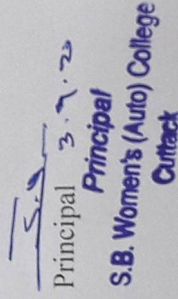 Principal 3.9.20
Principal
S.B. Women's (Auto) College
Cuttack